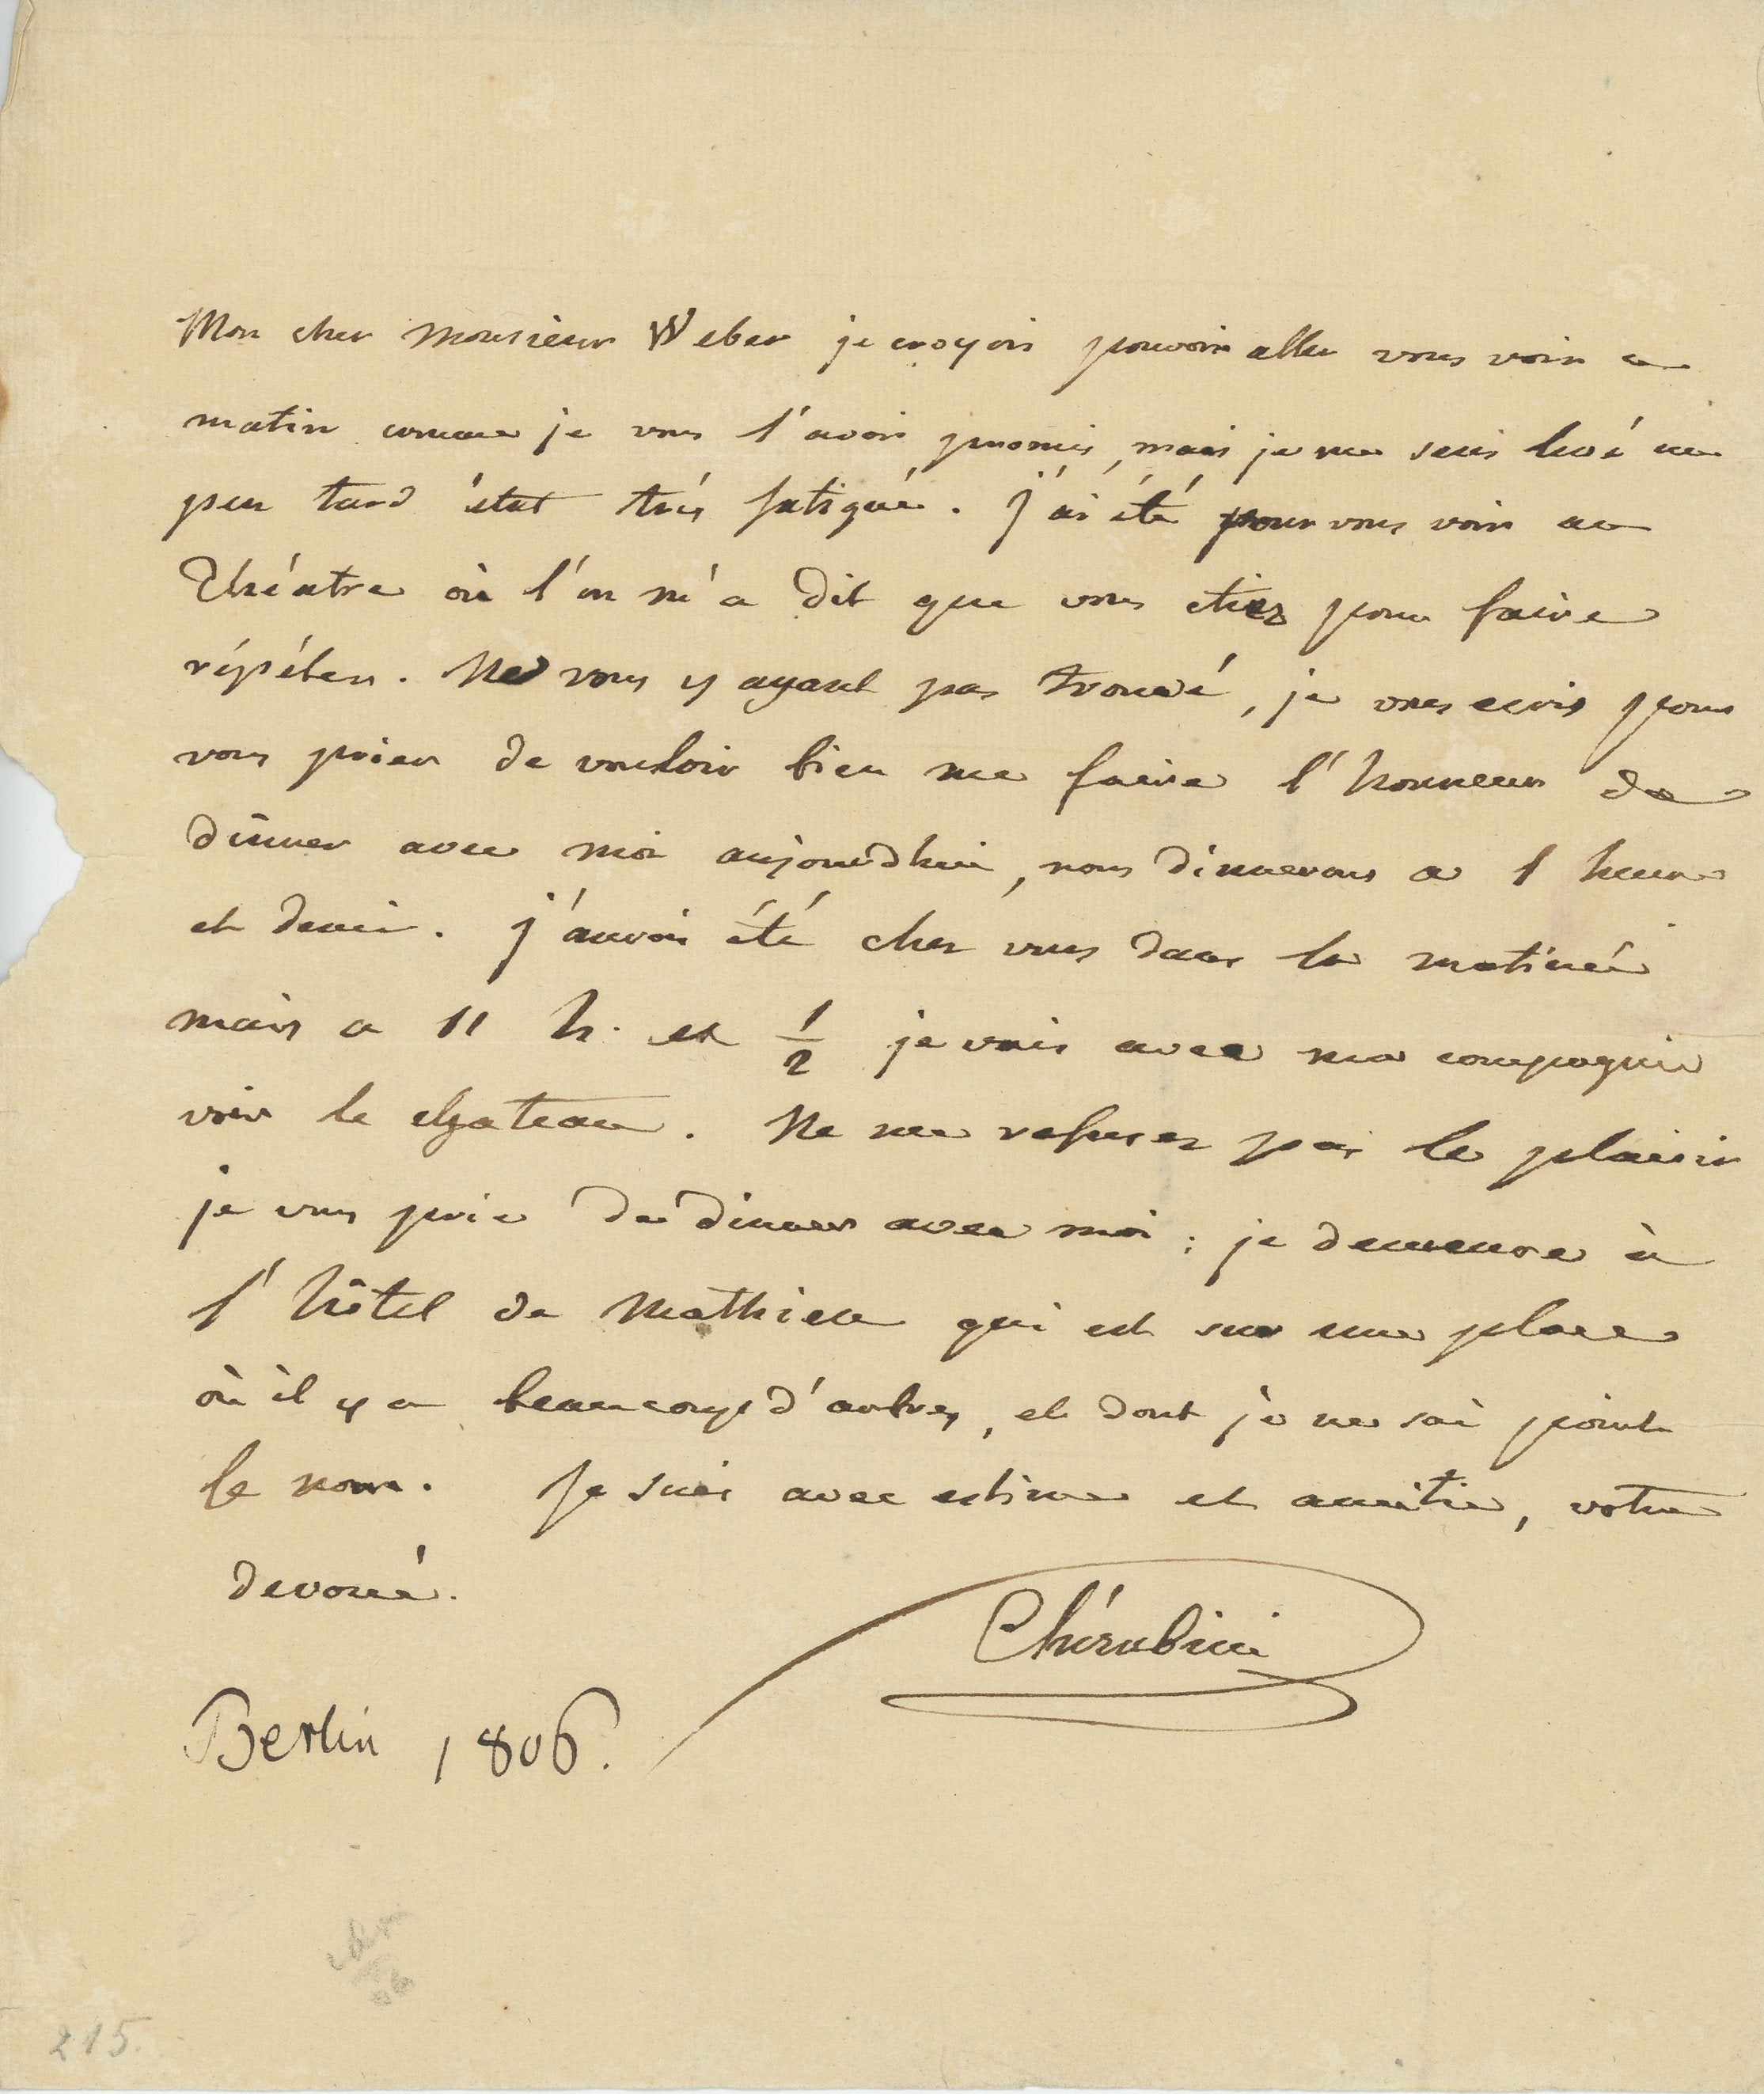 Mon cher Monsieur Weber je croyois pouvoir aller vous voir ce
matin comme je vous l'avois promis, mais je me suis levé un
peu tard étant très fatigué. J'ai été pour vous voir au
Théatre où l'on m'a dit que vous etiez pour faire
répéter. Ne vous y ayant pas trouvé, je vous ecris pour
vous prier de vouloir bien me faire l'honneur de
dinner avec moi aujourdhui, nous dinnerons a 1 heure
et demi. j'aurois été chez vous dans la matinée
mais a 11 h. et 1/2 je vais avec ma compagnie
voir le chateau. Ne me refusez pas le plaisir
je vous prie de dinner avec moi; je demeure à
l'hôtel de Mathieu qui est sur une place
où il y a beaucoup d'arbres, et dont je ne sai point
le nom. Je suis avec estime et amitié, votre
devoué.
Chérubini
Berlin 1806.
215.